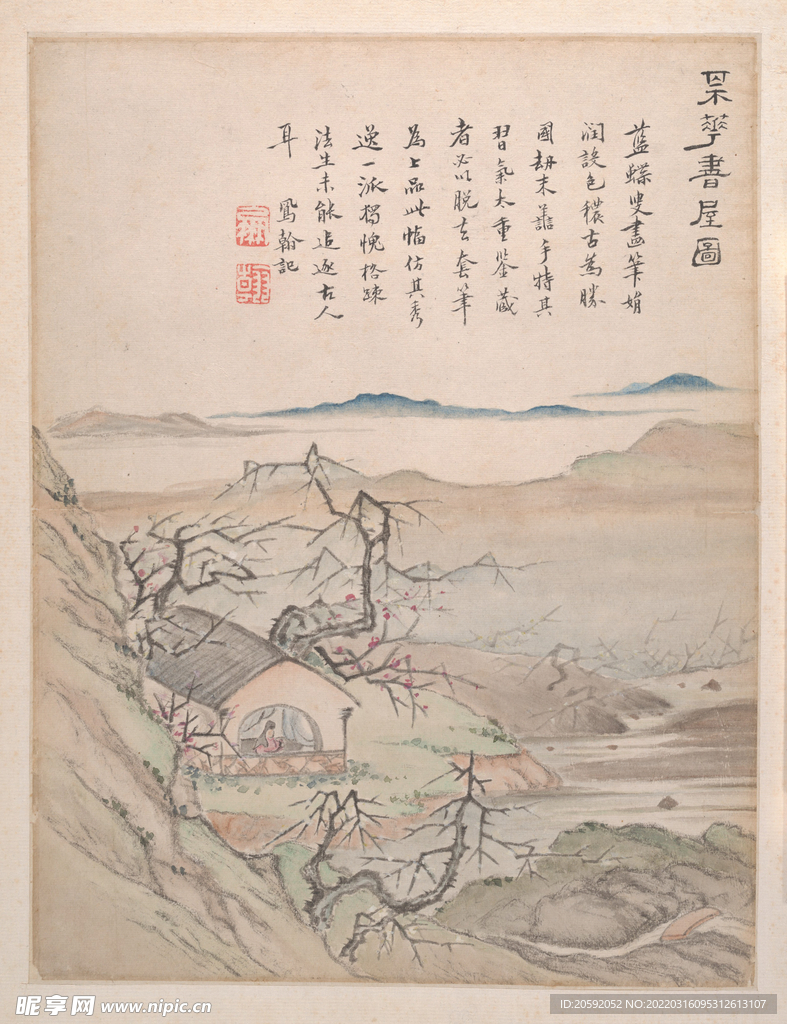 華書屋圖
藍蝶叟畫筆娟
潤設色穠古為勝
國劫末譱手特其
習氣太重鉴藏
者必以脫去套筆
為上品此幅仿其秀
逸一派猶愧格踈
法生未能追逐古人
耳 鳳翰記
昵享网 www.nipic.cn
ID:20592052 NO:20220316095312613107